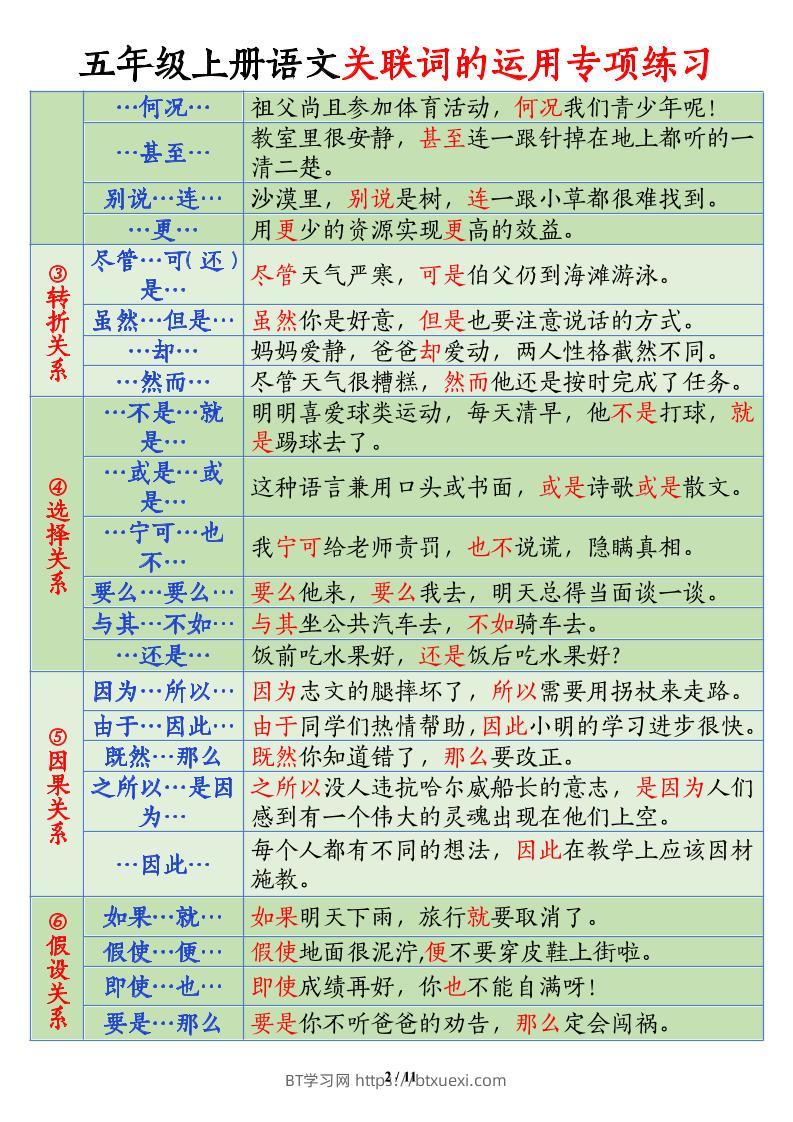 五年级上册语文关联词的运用专项练习
…何况… 祖父尚且参加体育活动，何况我们青少年呢！
…甚至… 教室里很安静，甚至连一跟针掉在地上都听的一
清二楚。
别说…连… 沙漠里，别说是树，连一跟小草都很难找到。
…更… 用更少的资源实现更高的效益。
③转折关系
尽管…可（还）
是…
尽管天气严寒，可是伯父仍到海滩游泳。
虽然…但是… 虽然你是好意，但是也要注意说话的方式。
…却… 妈妈爱静，爸爸却爱动，两人性格截然不同。
…然而… 尽管天气很糟糕，然而他还是按时完成了任务。
④选择关系
…不是…就
是…
明明喜爱球类运动，每天清早，他不是打球，就
是踢球去了。
…或是…或
是…
这种语言兼用口头或书面，或是诗歌或是散文。
…宁可…也
不…
我宁可给老师责罚，也不说谎，隐瞒真相。
要么…要么… 要么他来，要么我去，明天总得当面谈一谈。
与其…不如… 与其坐公共汽车去，不如骑车去。
…还是… 饭前吃水果好，还是饭后吃水果好?
⑤因果关系
因为…所以… 因为志文的腿摔坏了，所以需要用拐杖来走路。
由于…因此… 由于同学们热情帮助,因此小明的学习进步很快。
既然…那么 既然你知道错了，那么要改正。
之所以…是因
为…
之所以没人违抗哈尔威船长的意志，是因为人们
感到有一个伟大的灵魂出现在他们上空。
…因此… 每个人都有不同的想法，因此在教学上应该因材
施教。
⑥假设关系
如果…就… 如果明天下雨，旅行就要取消了。
假使…便… 假使地面很泥泞,便不要穿皮鞋上街啦。
即使…也… 即使成绩再好，你也不能自满呀！
要是…那么 要是你不听爸爸的劝告，那么定会闯祸。
2 / 11
BT学习网 https://btxuexi.com